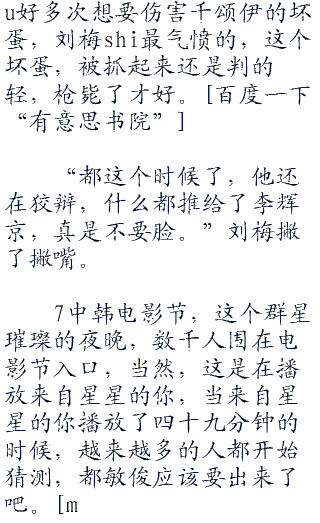 u好多次想要伤害千颂伊的坏
蛋，刘梅shi最气愤的，这个
坏蛋，被抓起来还是判的
轻，枪毙了才好。[百度一下
“有意思书院”]
“都这个时候了，他还
在狡辩，什么都推给了李辉
京，真是不要脸。”刘梅撇
了撇嘴。
7中韩电影节，这个群星
璀璨的夜晚，数千人围在电
影节入口，当然，这是在播
放来自星星的你，当来自星
星的你播放了四十九分钟的
时候，越来越多的人都开始
猜测，都敏俊应该要出来了
吧。[m